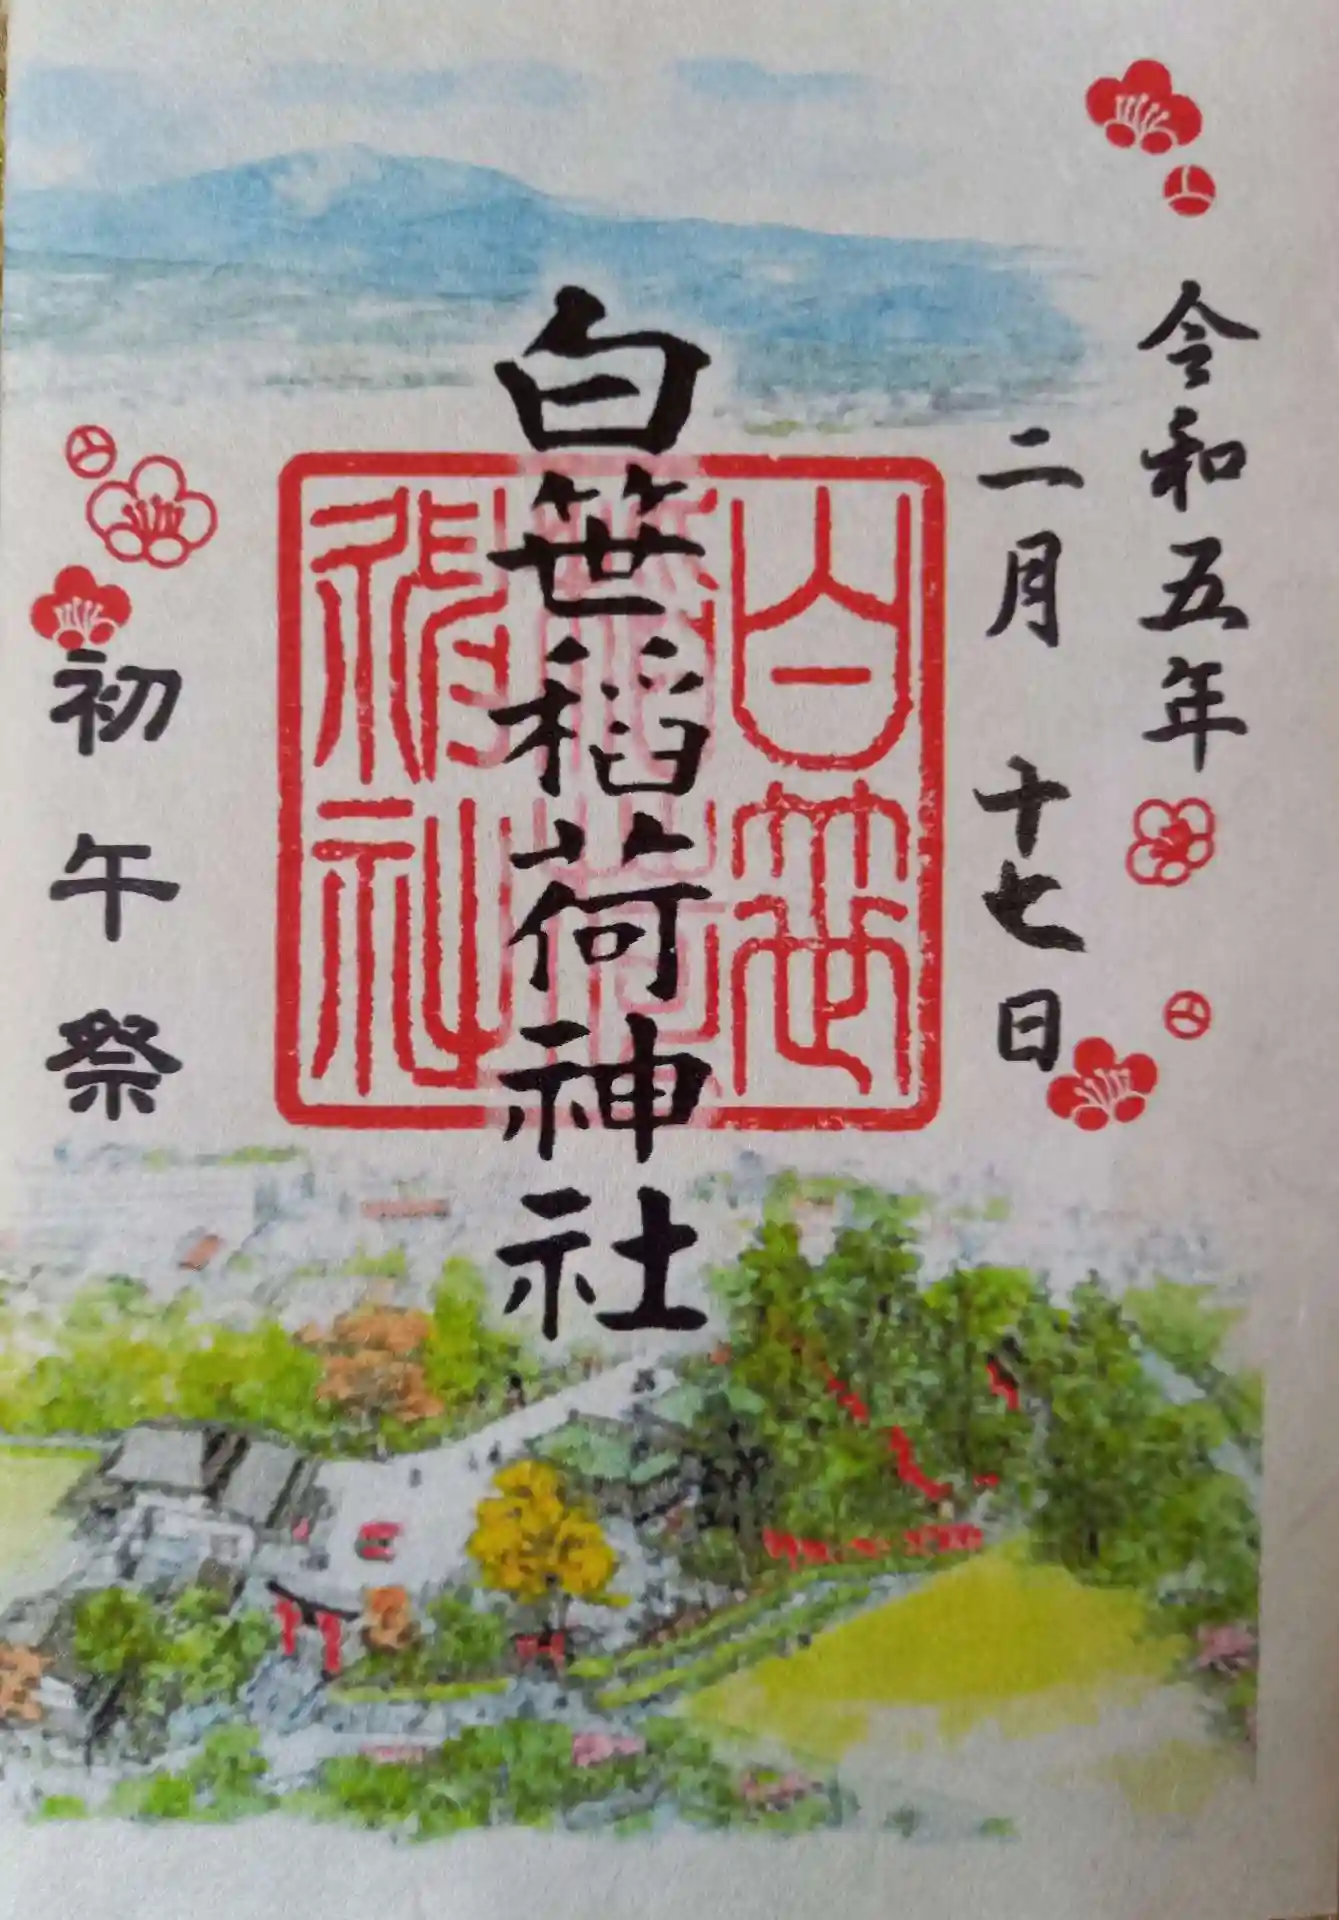 令和五年
二月十七日
白笹稲荷神社
白笹
稲荷
神社
初午祭